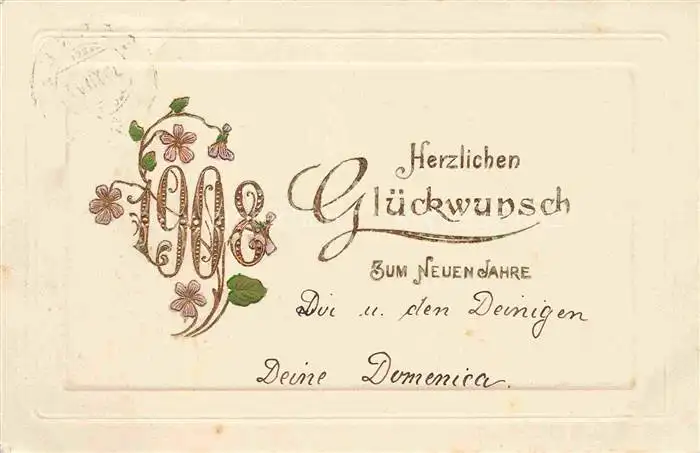 1908
Herzlichen
Glückwunsch
ZUM NEUEN JAHRE
Dir u. den Deinigen
Deine Domenica.